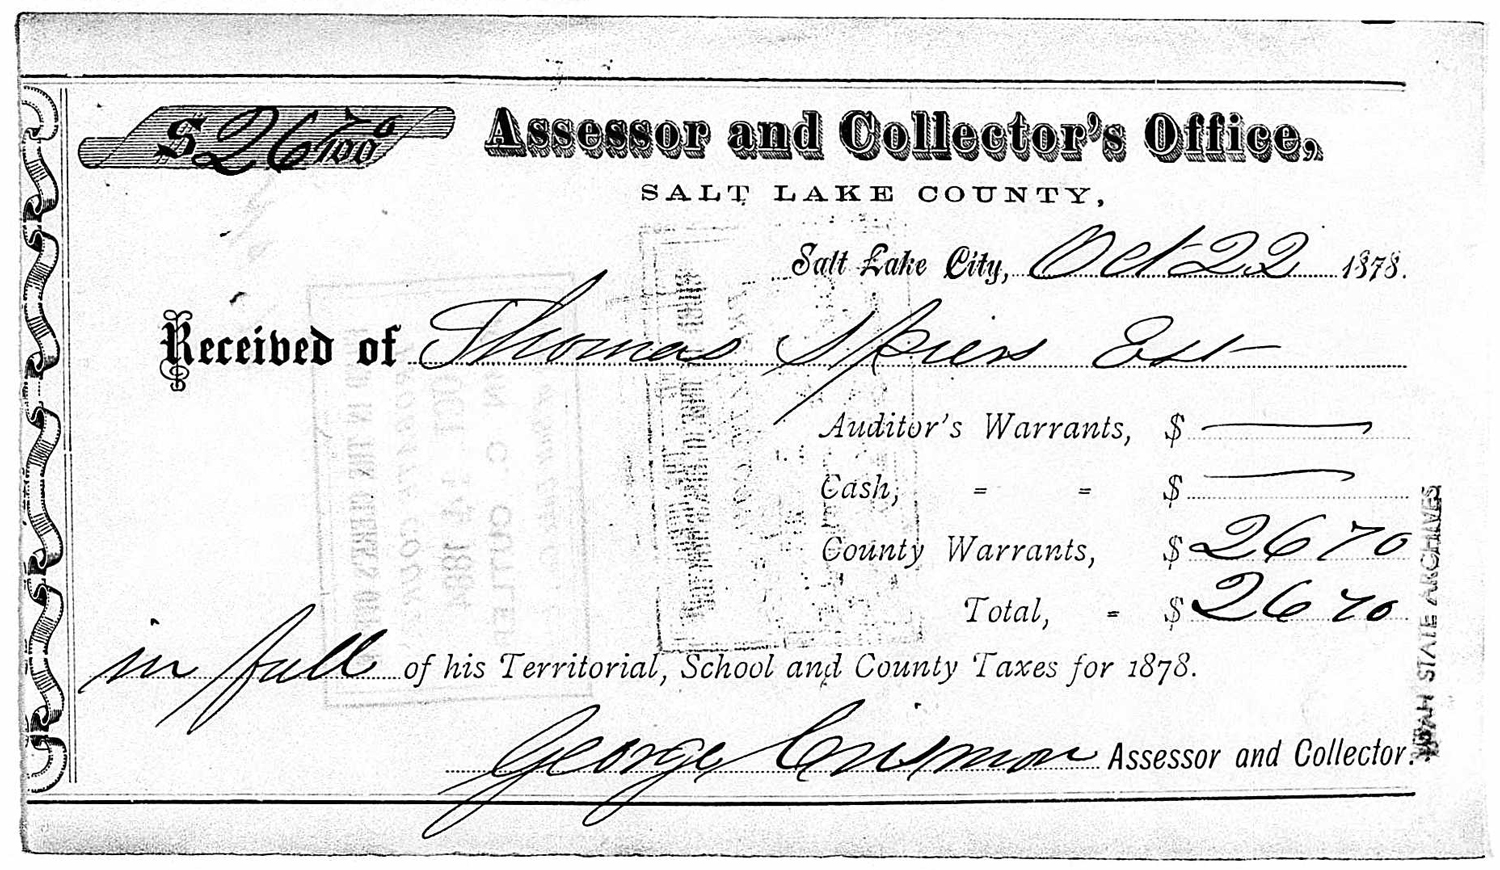 $26 70/100 Assessor and Collector's Office,
SALT LAKE COUNTY,
Salt Lake City, Oct 22 1878.
Received of Thomas Spiers Est
Auditor's Warrants, $ —
Cash, = = $ —
County Warrants, $ 26 70
Total, = $ 26 70
in full of his Territorial, School and County Taxes for 1878.
George Crismon Assessor and Collector.
UTAH STATE ARCHIVES